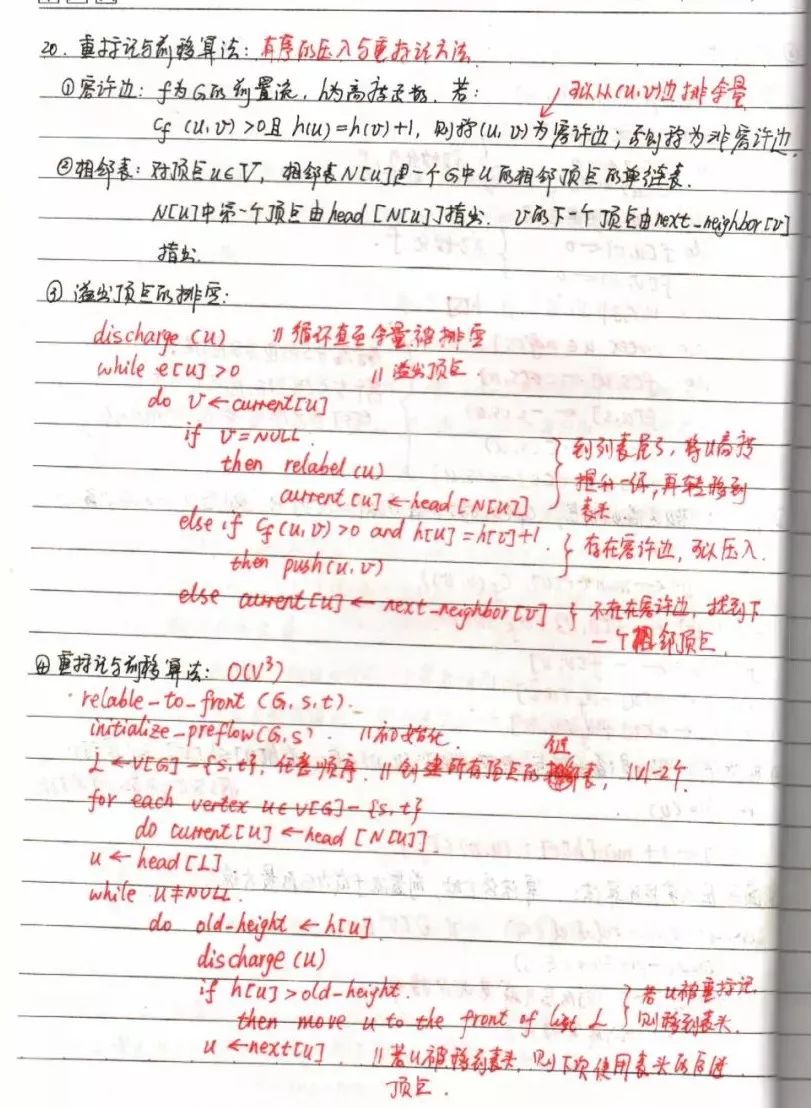 20. 重标记与前移算法：有序的压入与重标记方法
①容许边：f为G的前置流，h为高度函数. 若：
可以从(u,v)边排余量
Cf (u,v) >0且 h(u)=h(v)+1，则称(u,v)为容许边；否则称为非容许边.
②相邻表：对顶点u∈V，相邻表N[u]是一个G中u的相邻顶点的单链表.
N[u]中第一个顶点由head [N[u]]指出. v的下一个顶点由next_neighbor[v]
指出.
③ 溢出顶点的排空：
discharge (u) //循环直至余量被排空
while e[u] >0 //溢出顶点
do v←current[u]
if v=NULL
then relabel (u)
current [u] ←head [N[u]]
到列表尾了，将u高度
提升一次，再转移到
表头
else if Cf (u,v)>0 and h[u] =h[v]+1. 存在容许边，可以压入.
then push(u,v)
else current[u] ← next_neighbor[v] 不存在容许边，找到下
一个相邻顶点.
④重标记与前移算法：O(V³)
relable-to-front (G, s, t).
initialize-preflow(G,s) //初始化.
L ←V[G] -{s,t}，任意顺序. //创建所有顶点的链表，|V|-2个.
for each vertex u∈V[G]-{s,t}
do current[u] ←head [N[u]]
u ← head [L]
while u≠NULL.
do old-height ← h[u]
discharge (u)
if h[u] >old-height. 若u被重标记
then move u to the front of list L 则移到表头.
u ←next[u] //若u被移到表头，则下次使用表头的后继
顶点.